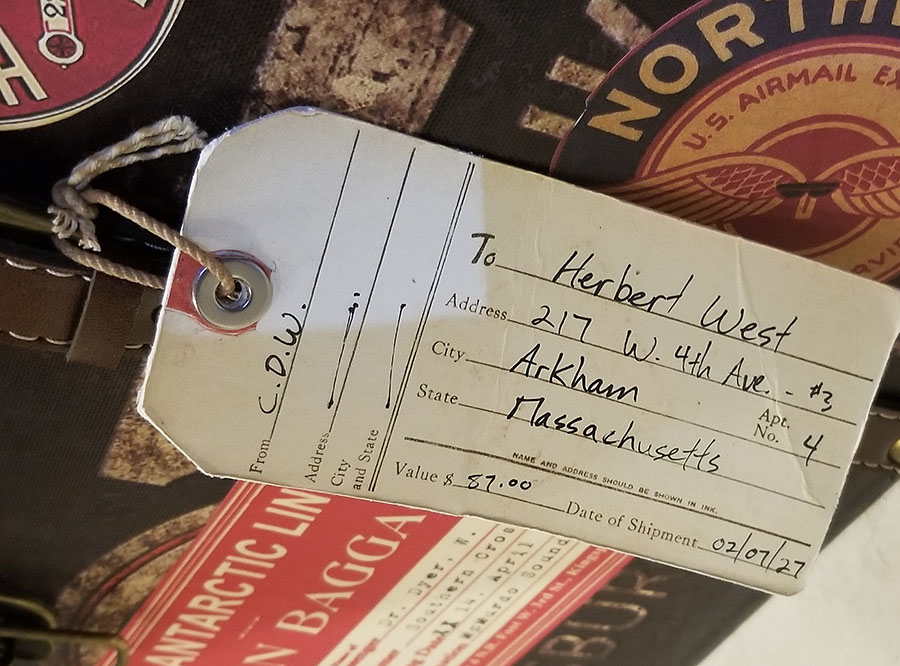 NORTH
U.S. AIRMAIL EX
H
From C.D.W.
Address
City
and State
To Herbert West
Address 217 W. 4th Ave. - #3
City Arkham
Apt. No. 4
State Massachusetts
NAME AND ADDRESS SHOULD BE SHOWN IN INK.
Value $ 87.00
Date of Shipment 02/07/27
ANTARCTIC LIN
N BAGGA
Dr. Dyer, W.
Southern Cros
14, April
McMurdo Sound
BUR